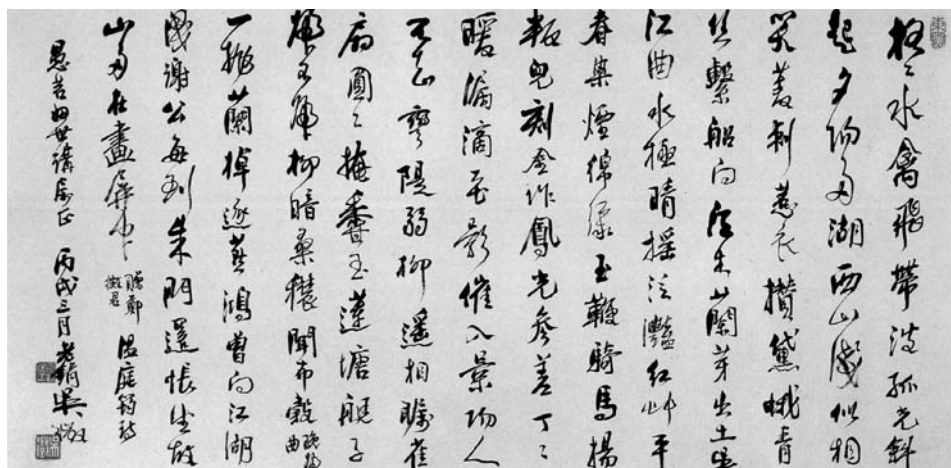 格々水禽飛帶波孤光斜
起夕陽多湖西山淺似相
笑菱刺惹衣攢黛蛾青
絲繫船向江木蘭芽出土吳
江曲水極晴搖泛灩紅艸平
春染煙綿綠玉鞭騎馬楊
叛兒刻金作鳳光參差丁々
暖漏滴花影催入景陽人
不知彎隄弱柳遙相矚雀
扇圓々掩香玉蓮塘艇子
歸不歸柳暗桑穠聞布穀 晚歸曲
一拋蘭棹逐燕鴻曾向江湖
識謝公每到朱門還悵望故
山多在畫屏中 贈鄭徵君 溫庭筠詩
世講屬正 丙戌三月